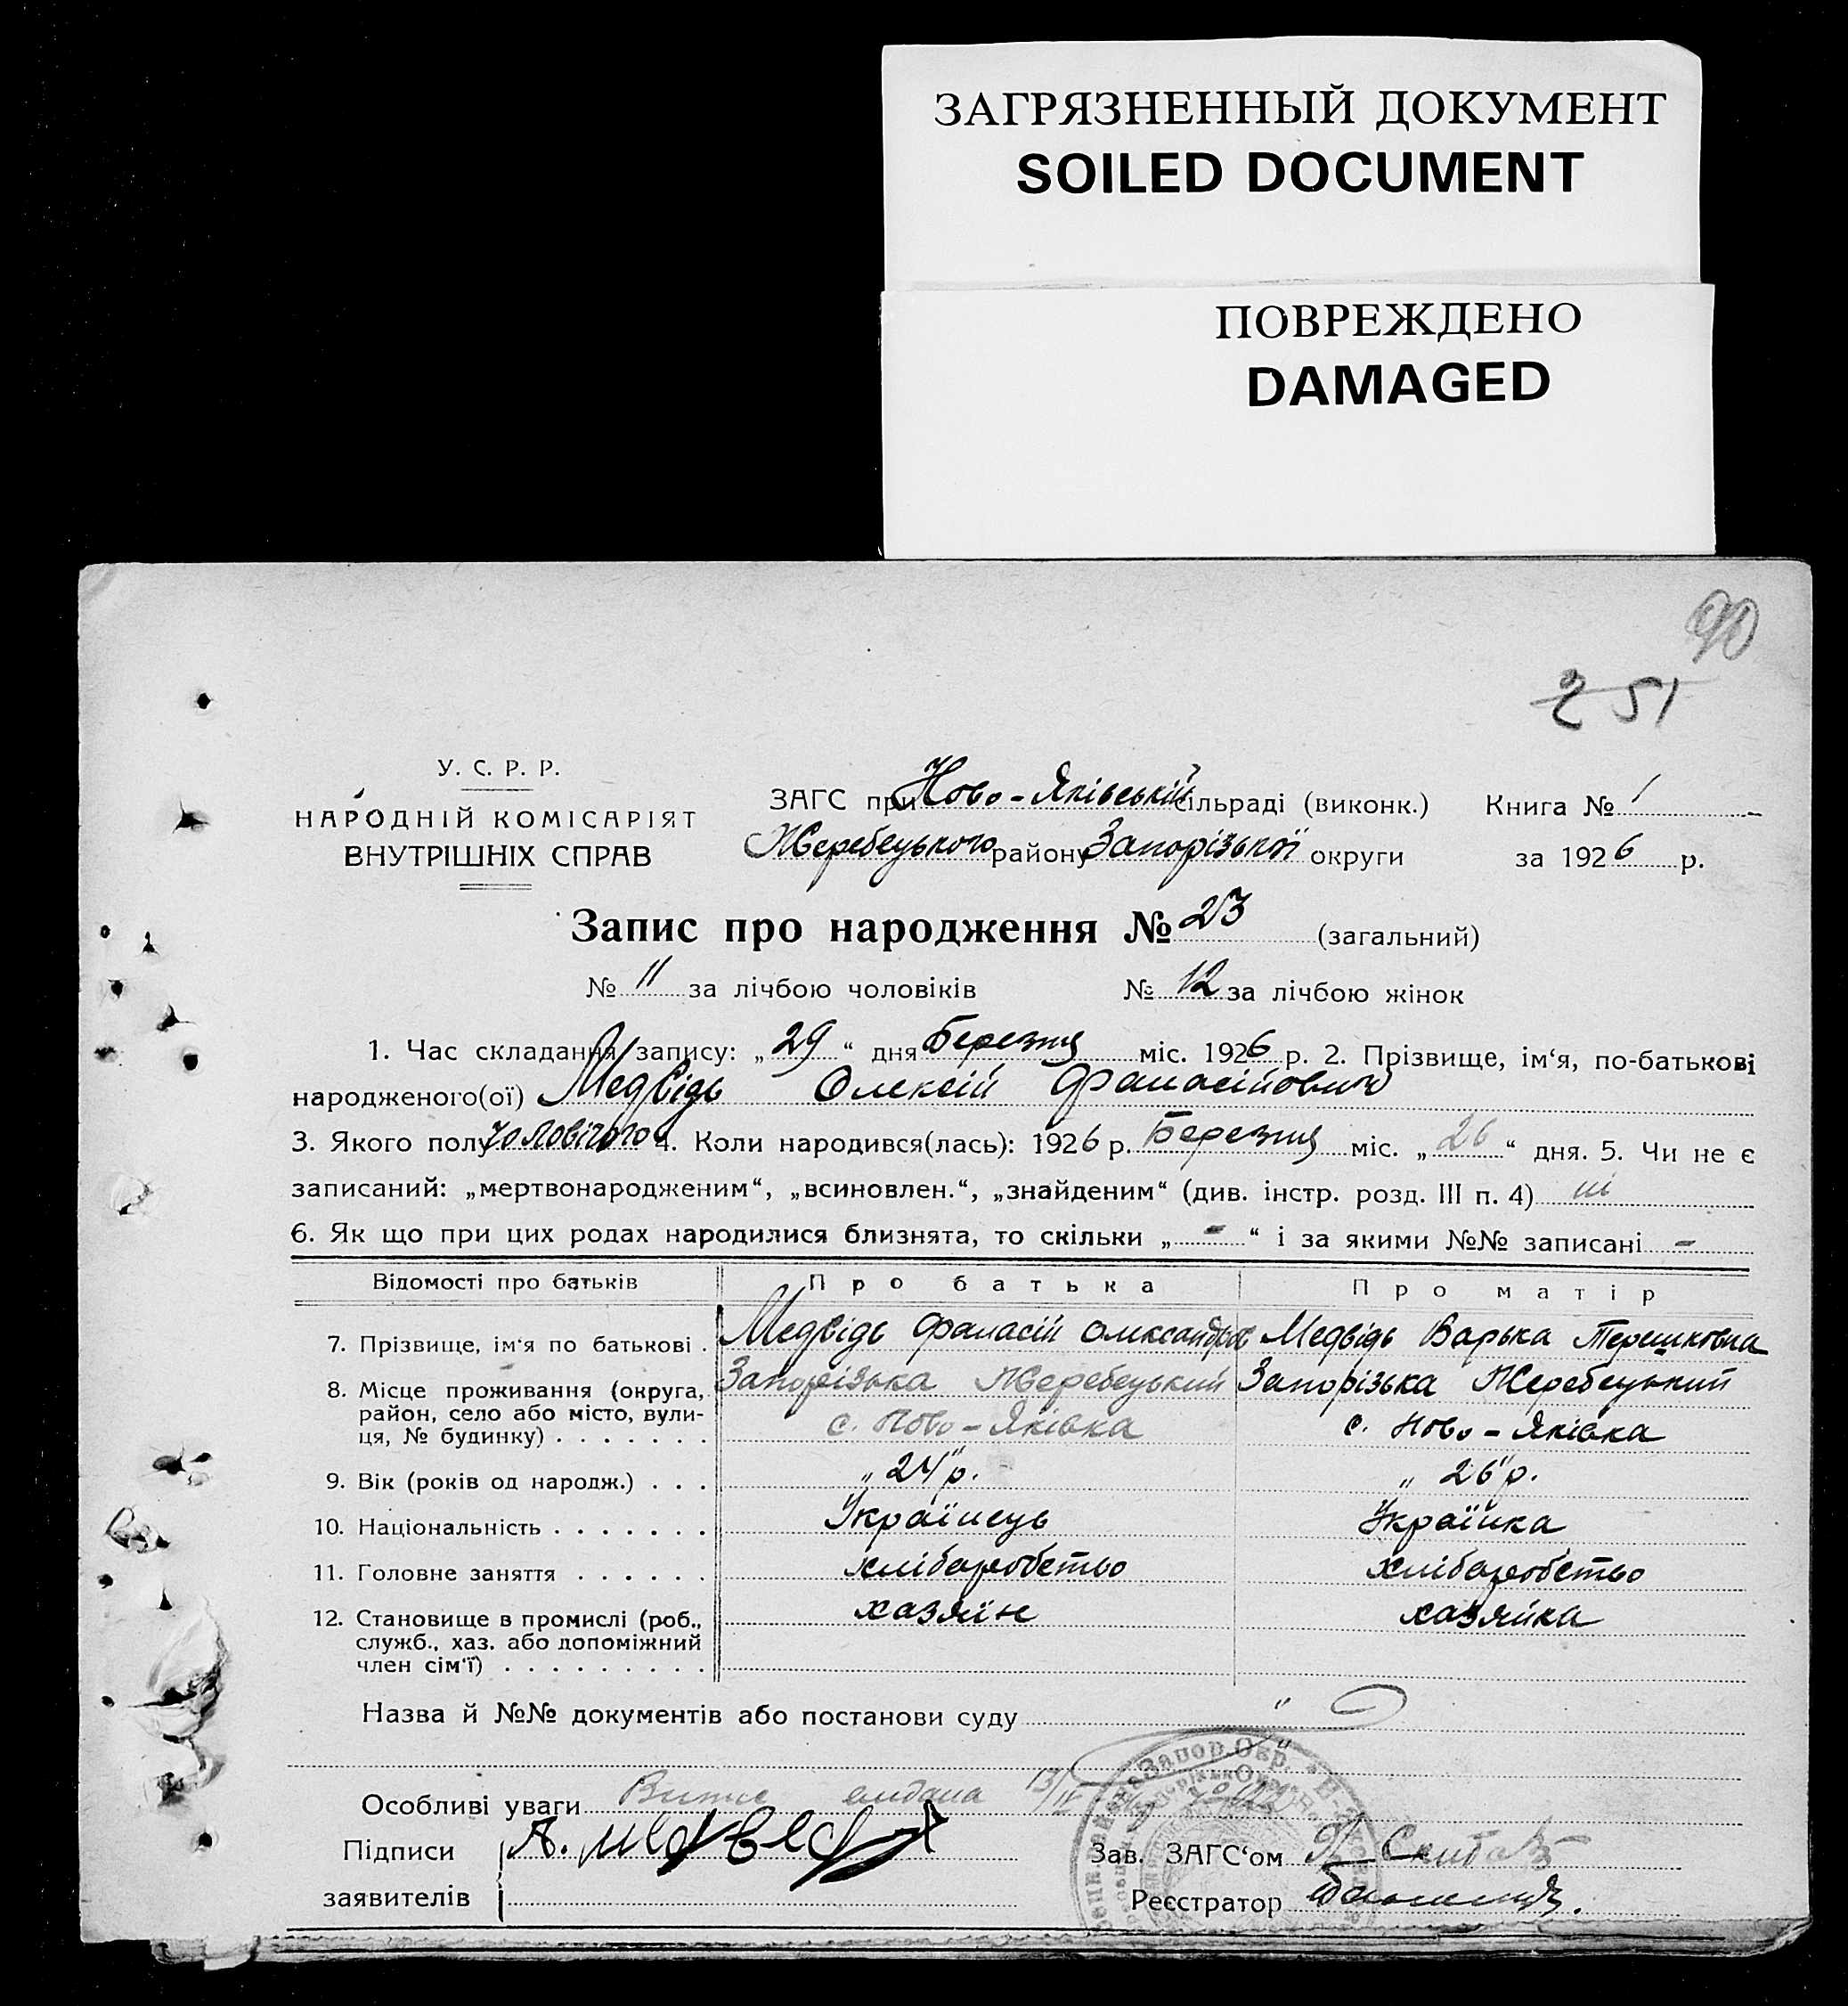 ЗАГРЯЗНЕННЫЙ ДОКУМЕНТ
SOILED DOCUMENT
ПОВРЕЖДЕНО
DAMAGED
90
251
У. С. Р. Р.
НАРОДНІЙ КОМІСАРІЯТ
ВНУТРІШНІХ СПРАВ
ЗАГС при Ново-Яківській сільраді (виконк.) Книга № 1
Жеребецького району Запорізької округи за 1926 р.
Запис про народження № 23 (загальний)
№ 11 за лічбою чоловіків № 12 за лічбою жінок
1. Час складання запису: „29“ дня Березня міс. 1926 р. 2. Прізвище, ім‘я, по-батькові
народженого(ої) Медвідь Олексій Фанасійович
3. Якого полу чоловічого 4. Коли народився(лась): 1926 р. Березня міс. „26“ дня. 5. Чи не є
записаний: „мертвонародженим“, „всиновлен.“, „знайденим“ (див. інстр. розд. III п. 4) ні
6. Як що при цих родах народилися близнята, то скільки „-“ і за якими №№ записані -
Відомості про батьків Про батька Про матір
7. Прізвище, ім‘я по батькові . Медвідь Фанасій Олександров Медвідь Варька Терешковна
8. Місце проживання (округа, Запорізька Жеребецький Запорізька Жеребецький
район, село або місто, вули- с. Ново-Яківка с. Ново-Яківка
ця, № будинку) . . . . . . .
9. Вік (років од народж.) . . . „24“ р. „26“ р.
10. Національність . . . . . . . Українець Українка
11. Головне заняття . . . . . . хліборобство хліборобство
12. Становище в промислі (роб., хазяїн хазяйка
служб., хаз. або допоміжний
член сім‘ї) . . . . . . . . .
Назва й №№ документів або постанови суду "
"
Особливі уваги видана 13/IV
Підписи А. Медведь Зав. ЗАГС‘ом Скиба
заявителів Реєстратор
Запор. Окр.